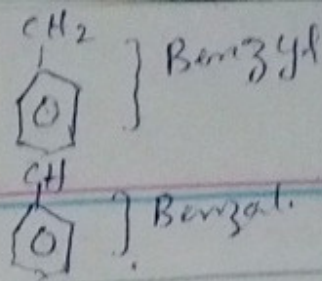 CH2
Benzyl
CH
Benzal.